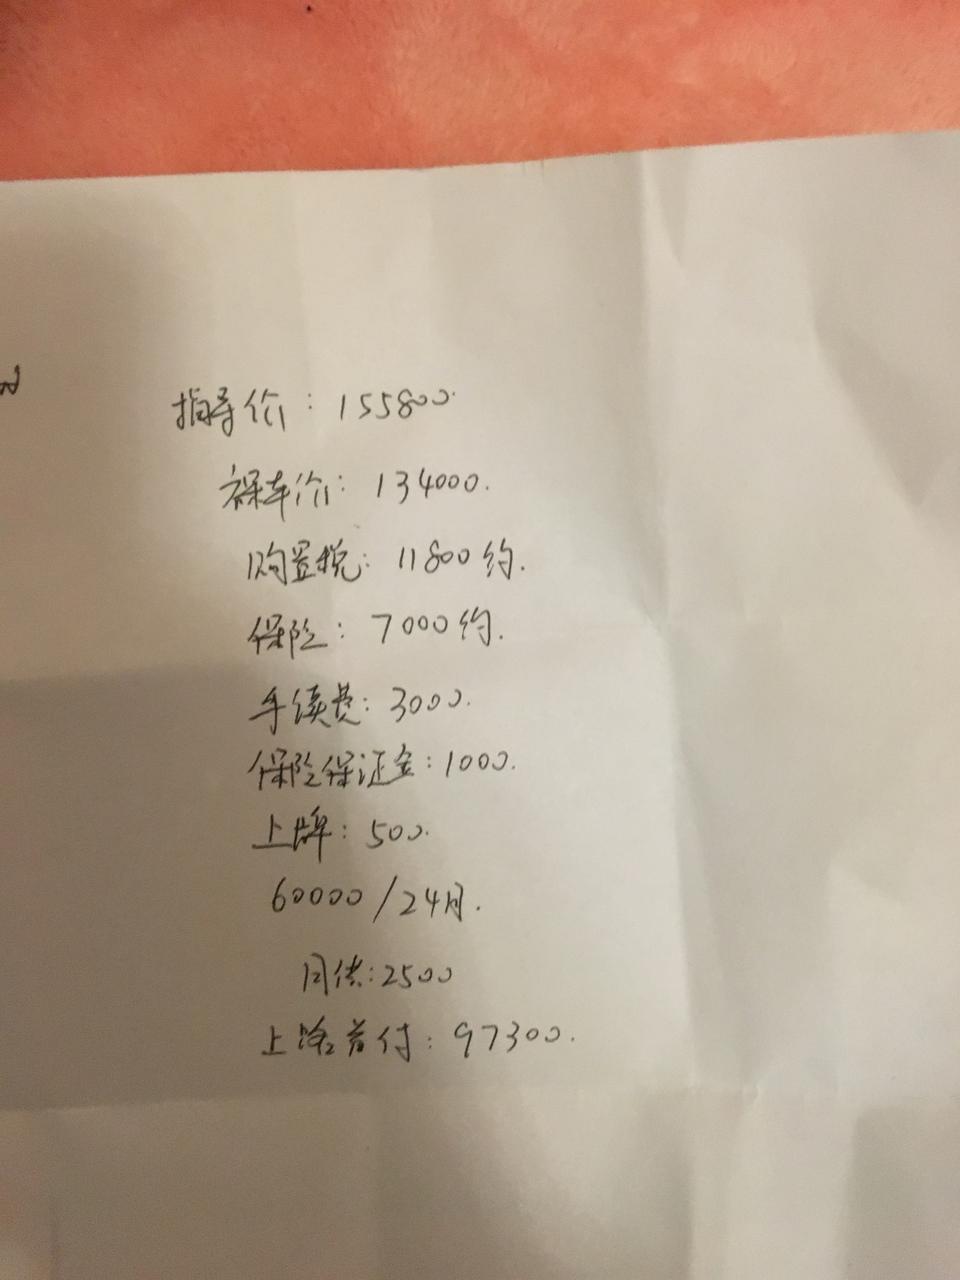 指导价：155800.
裸车价：134000.
购置税：11800约.
保险：7000约.
手续费：3000.
保险保证金：1000.
上牌：500.
60000/24月.
月供：2500
上路首付：97300.